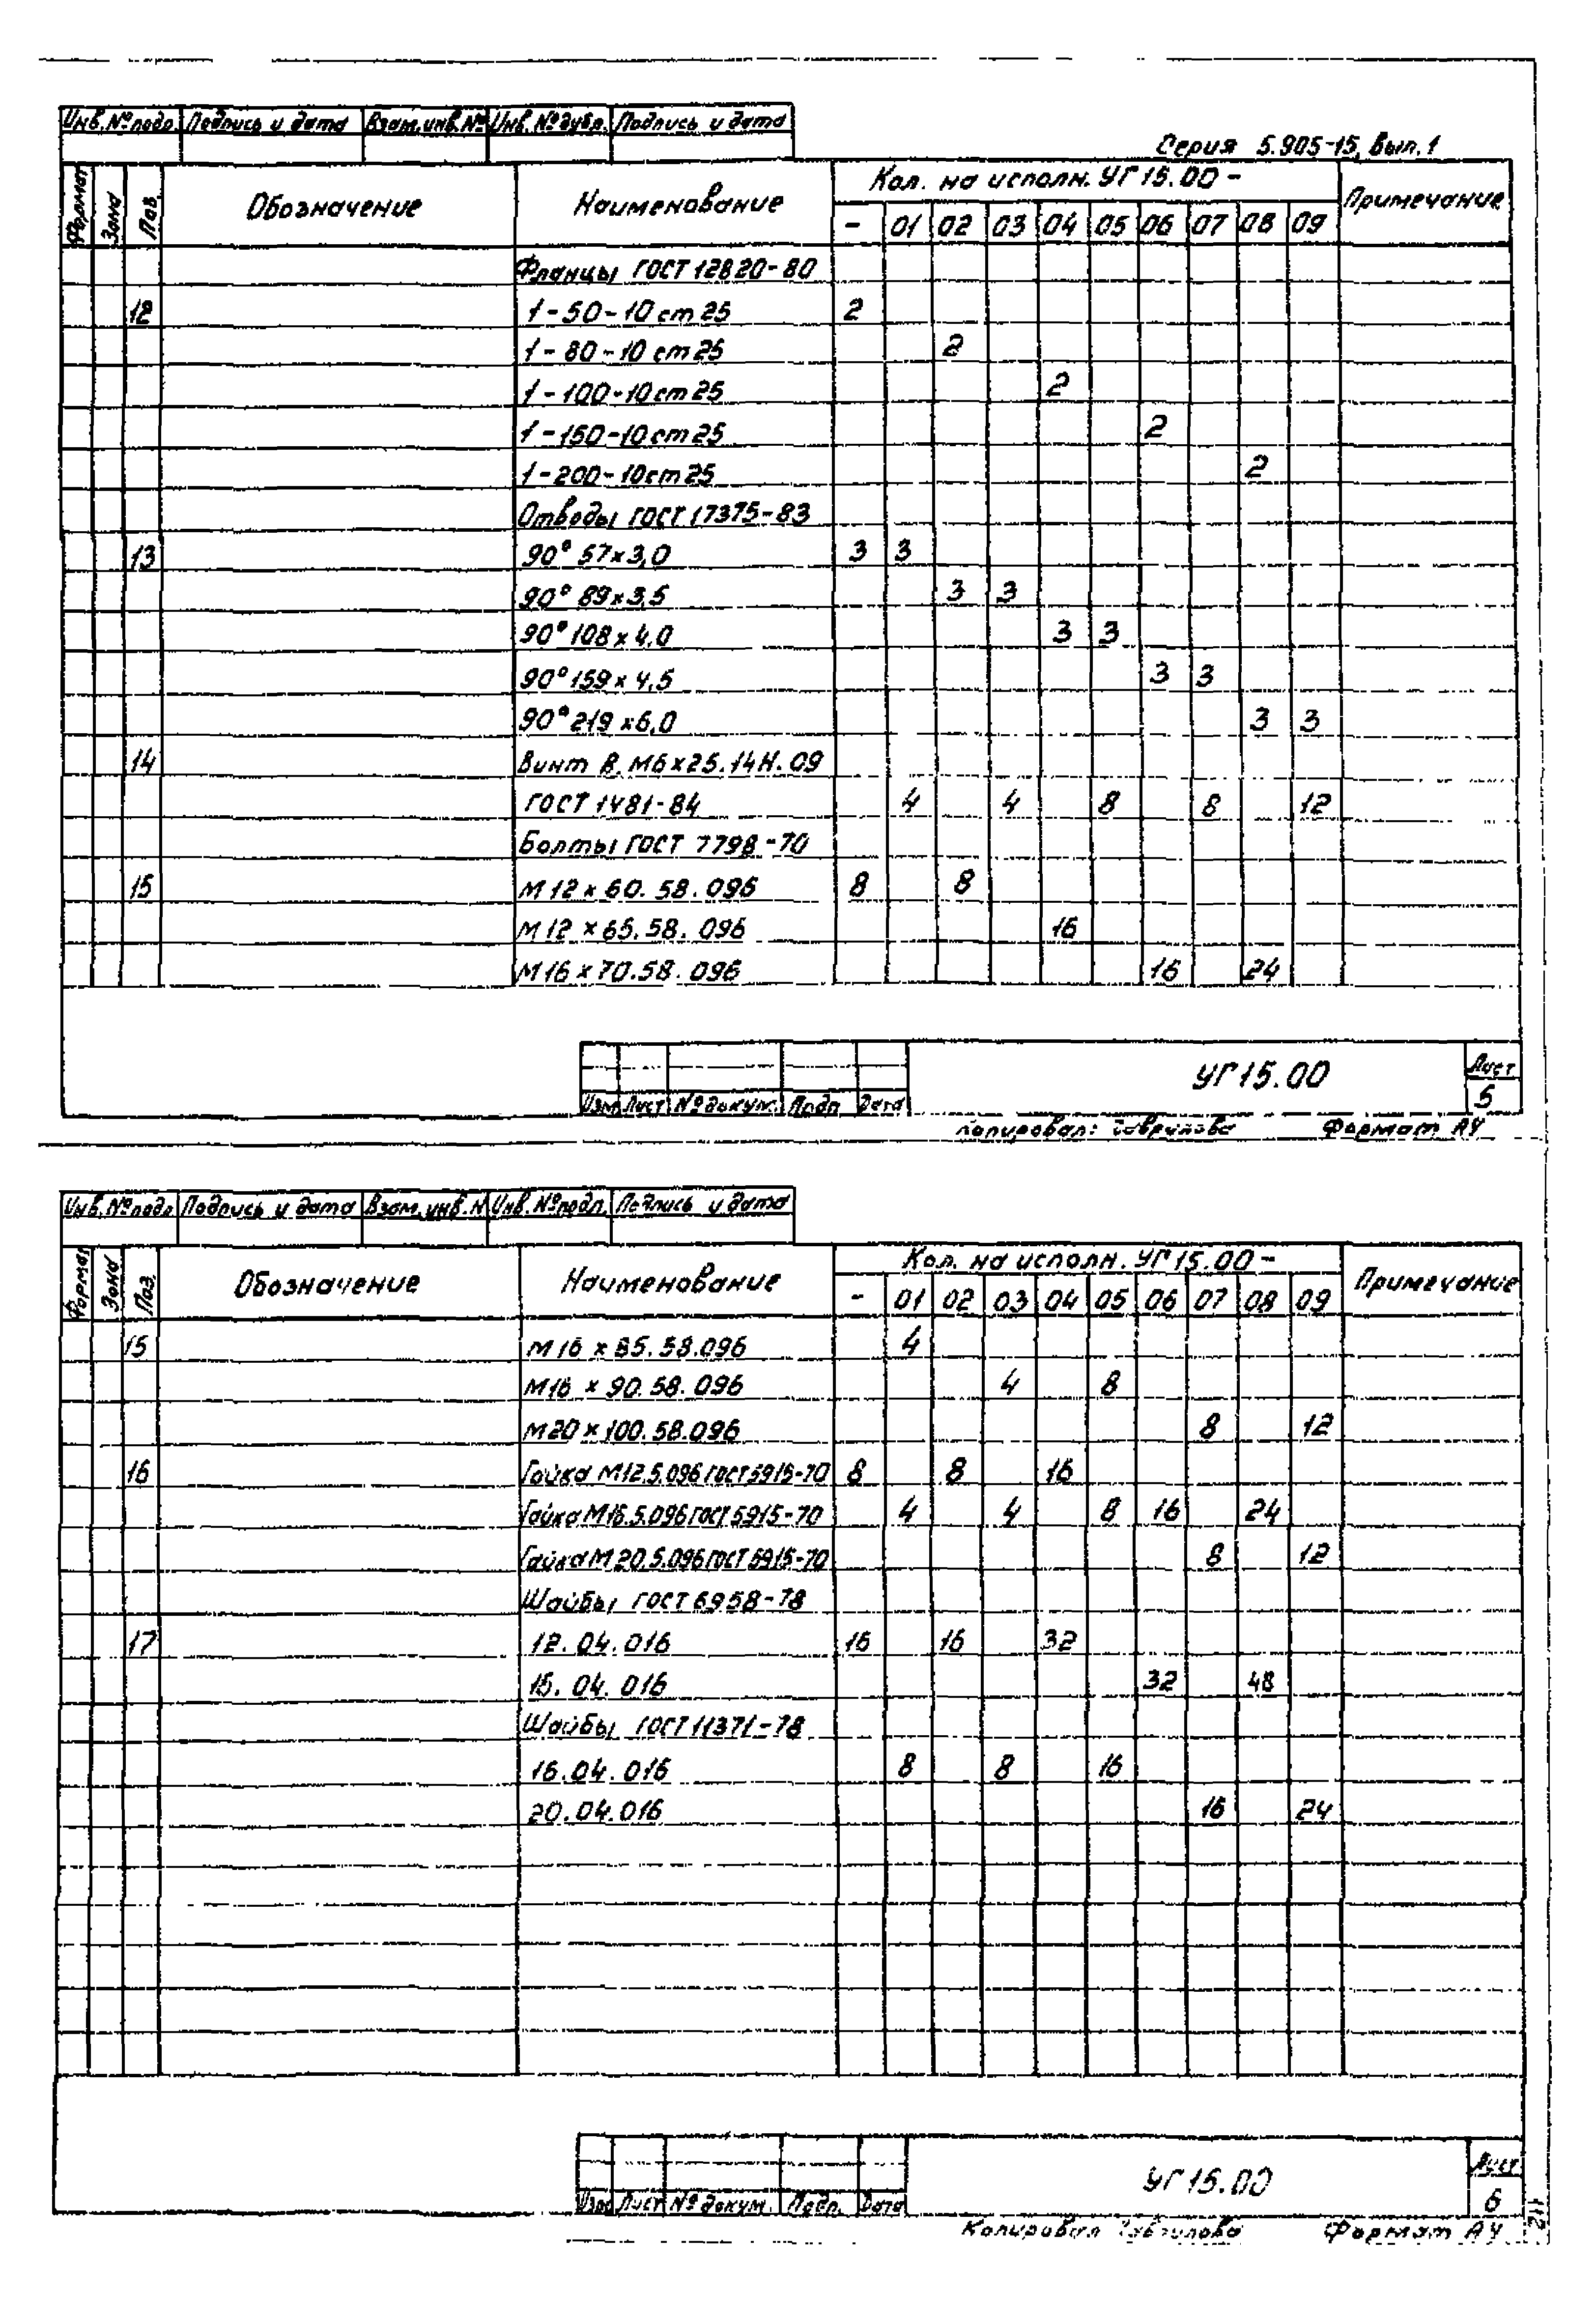 Инв.№подл. Подпись и дата Взам.инв.№ Инв.№дубл. Подпись и дата
Серия 5.905-15, вып.1
Формат Зона Поз. Обозначение Наименование Кол. на исполн. УГ15.00- Примечание
- 01 02 03 04 05 06 07 08 09
Фланцы ГОСТ 12820-80
12 1-50-10 ст 25 2
1-80-10 ст 25 2
1-100-10 ст 25 2
1-150-10 ст 25 2
1-200-10 ст 25 2
Отводы ГОСТ 17375-83
13 90° 57×3,0 3 3
90° 89×3,5 3 3
90° 108×4,0 3 3
90° 159×4,5 3 3
90° 219×6,0 3 3
14 Винт В.М6×25.14Н.09
ГОСТ 1481-84 4 4 8 8 12
Болты ГОСТ 7798-70
15 М12×60.58.096 8 8
М12×65.58.096 16
М16×70.58.096 16 24
УГ15.00 Лист
Изм Лист №докум. Подп Дата 5
Копировал: Гаврилова Формат А4
Инв.№подл Подпись и дата Взам.инв.№ Инв.№подл. Подпись и дата
Формат Зона Поз. Обозначение Наименование Кол. на исполн. УГ15.00- Примечание
- 01 02 03 04 05 06 07 08 09
15 М16×85.58.096 4
М16×90.58.096 4 8
М20×100.58.096 8 12
16 Гайка М12.5.096 ГОСТ 5915-70 8 8 16
Гайка М16.5.096 ГОСТ 5915-70 4 4 8 16 24
Гайка М20.5.096 ГОСТ 5915-70 8 12
Шайбы ГОСТ 6958-78
17 12.04.016 16 16 32
16.04.016 32 48
Шайбы ГОСТ 11371-78
16.04.016 8 8 16
20.04.016 16 24
УГ15.00 Лист
Изм Лист № докум. Подп. Дата 6
Копировал Гаврилова Формат А4
112